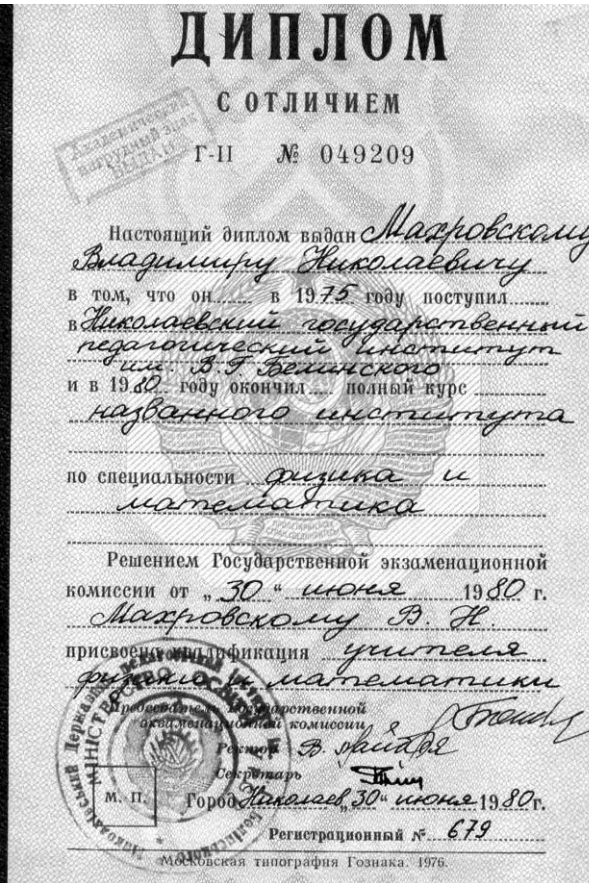 ДИПЛОМ
С ОТЛИЧИЕМ
Академический
нагрудный знак
ВЫДАН
Г-II № 049209
Настоящий диплом выдан Махровскому
Владимиру Николаевичу
в том, что он в 1975 году поступил
в Николаевский государственный
педагогический институт
им. В. Г. Белинского
и в 1980 году окончил полный курс
названного института
по специальности физика и
математика
Решением Государственной экзаменационной
комиссии от „30“ июня 1980 г.
Махровскому В. Н.
присвоена квалификация учителя
физики и математики
Председатель Государственной
экзаменационной комиссии
Ректор
Секретарь
М. П. Город Николаев „30“ июня 1980г.
Регистрационный № 679
Московская типография Гознака. 1976.